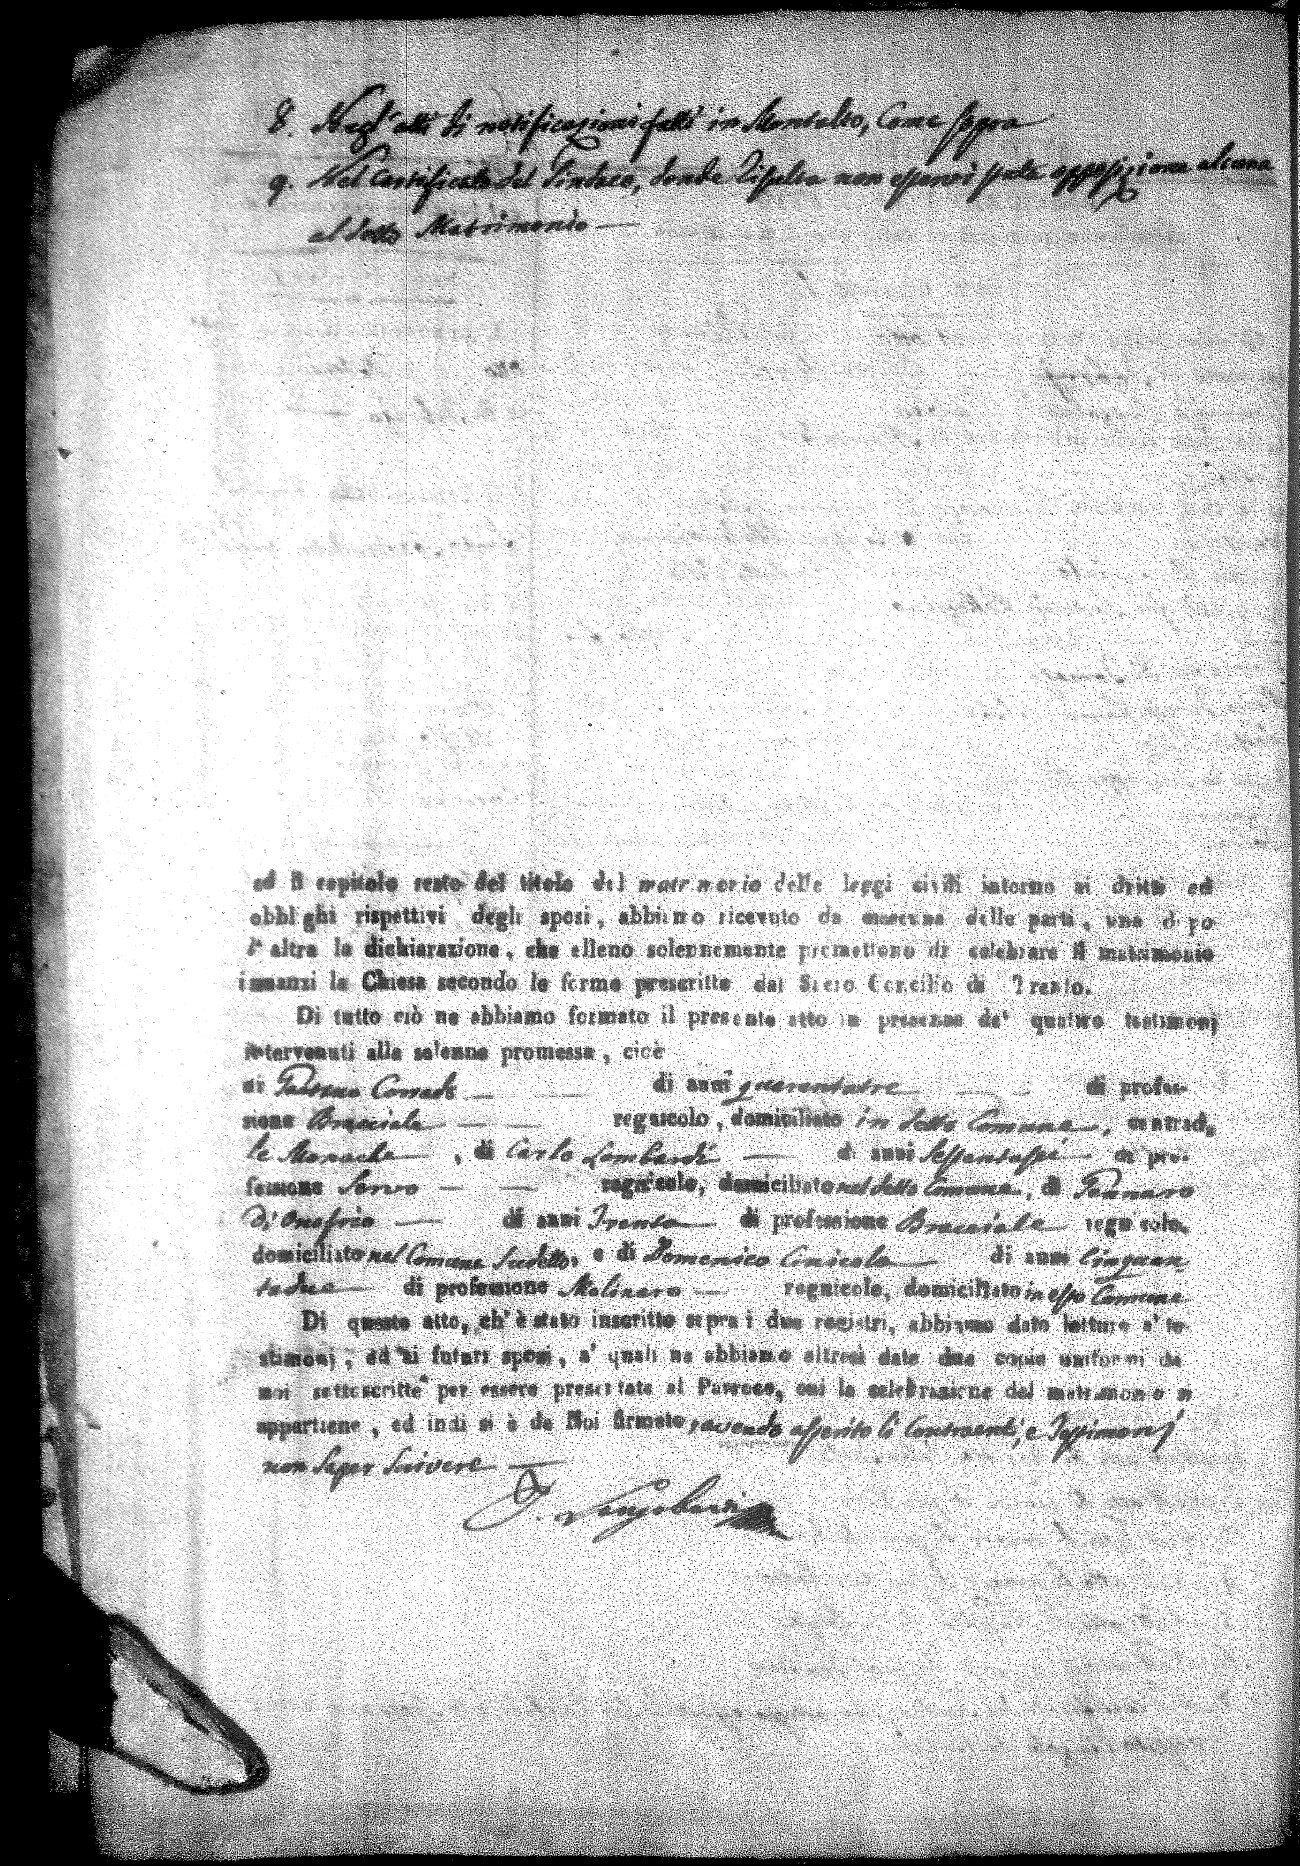 8. Negl'atti di notificazioni fatti in Montalto, Come sopra
9. Nel Certificato del Sindaco, donde Risulta non esservi stata opposizione alcuna
al detto Matrimonio
ed il capitolo sesto del titolo del matrimonio delle leggi civili intorno ai dritti ed
obblighi rispettivi degli sposi, abbiamo ricevuto da ciascuna delle parti, una dopo
l'altra la dichiarazione, che elleno solennemente promettono di celebrare il matrimonio
innanzi la Chiesa secondo le forme prescritte dal Sacro Concilio di Trento.
Di tutto ciò ne abbiamo formato il presente atto in presenza de' quattro testimonj
intervenuti alla solenne promessa, cioè
di Corrado di anni quarantatre di profes-
sione Bracciale regnicolo, domiciliato in detto Comune, contrad.
le Monache, di Carlo Lombardi di anni Sessantasei di pro-
fessione Servo regnicolo, domiciliato nel detto Comune, di Gennaro
di Onofrio di anni Trenta di professione Bracciale regnicolo,
domiciliato nel Comune Sudetto, e di Domenico di anni Cinquan
tadue di professione Molinaro regnicolo, domiciliato in esso Comune
Di questo atto, ch'è stato inscritto sopra i due registri, abbiamo dato lettura a' te-
stimonj, ed ai futuri sposi, a' quali ne abbiamo altresì date due copie uniformi da
noi sottoscritte per essere presentate al Parroco, cui la celebrazione del matrimonio si
appartiene, ed indi si è da Noi firmato, avendo asserito li Contraenti, e Testimonj
non Saper Scrivere